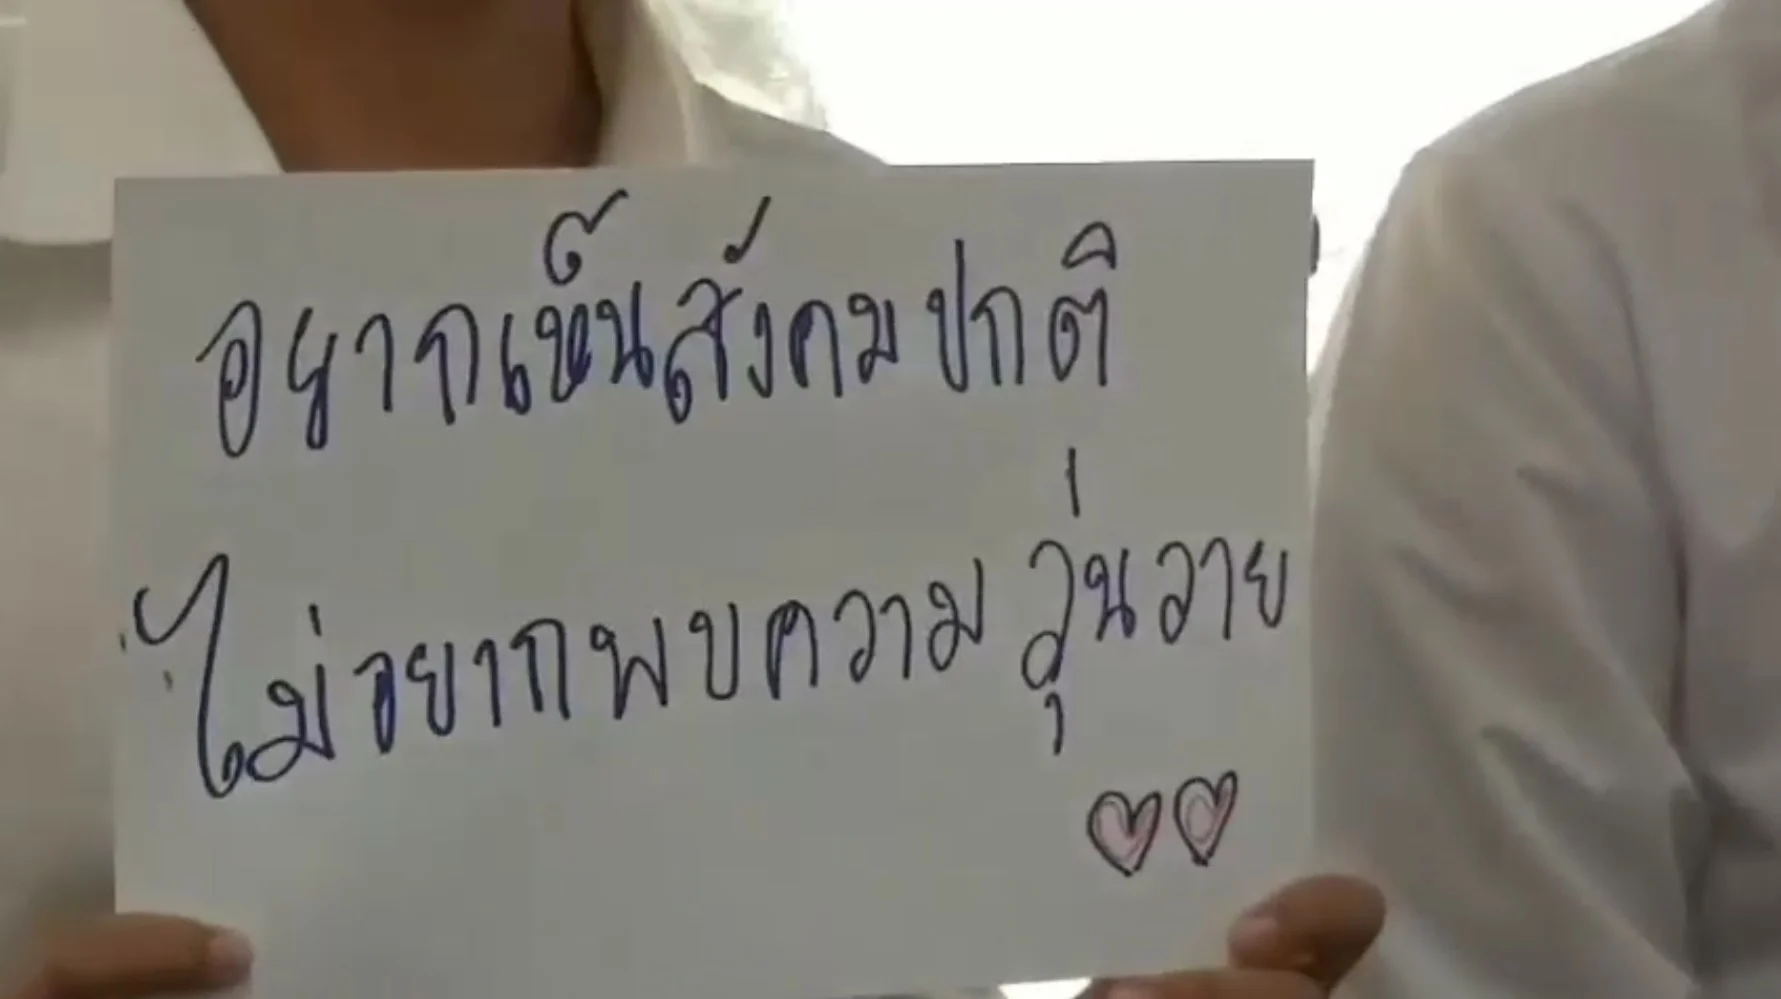 อยากเห็นสังคมปกติ
ไม่อยากพบความวุ่นวาย